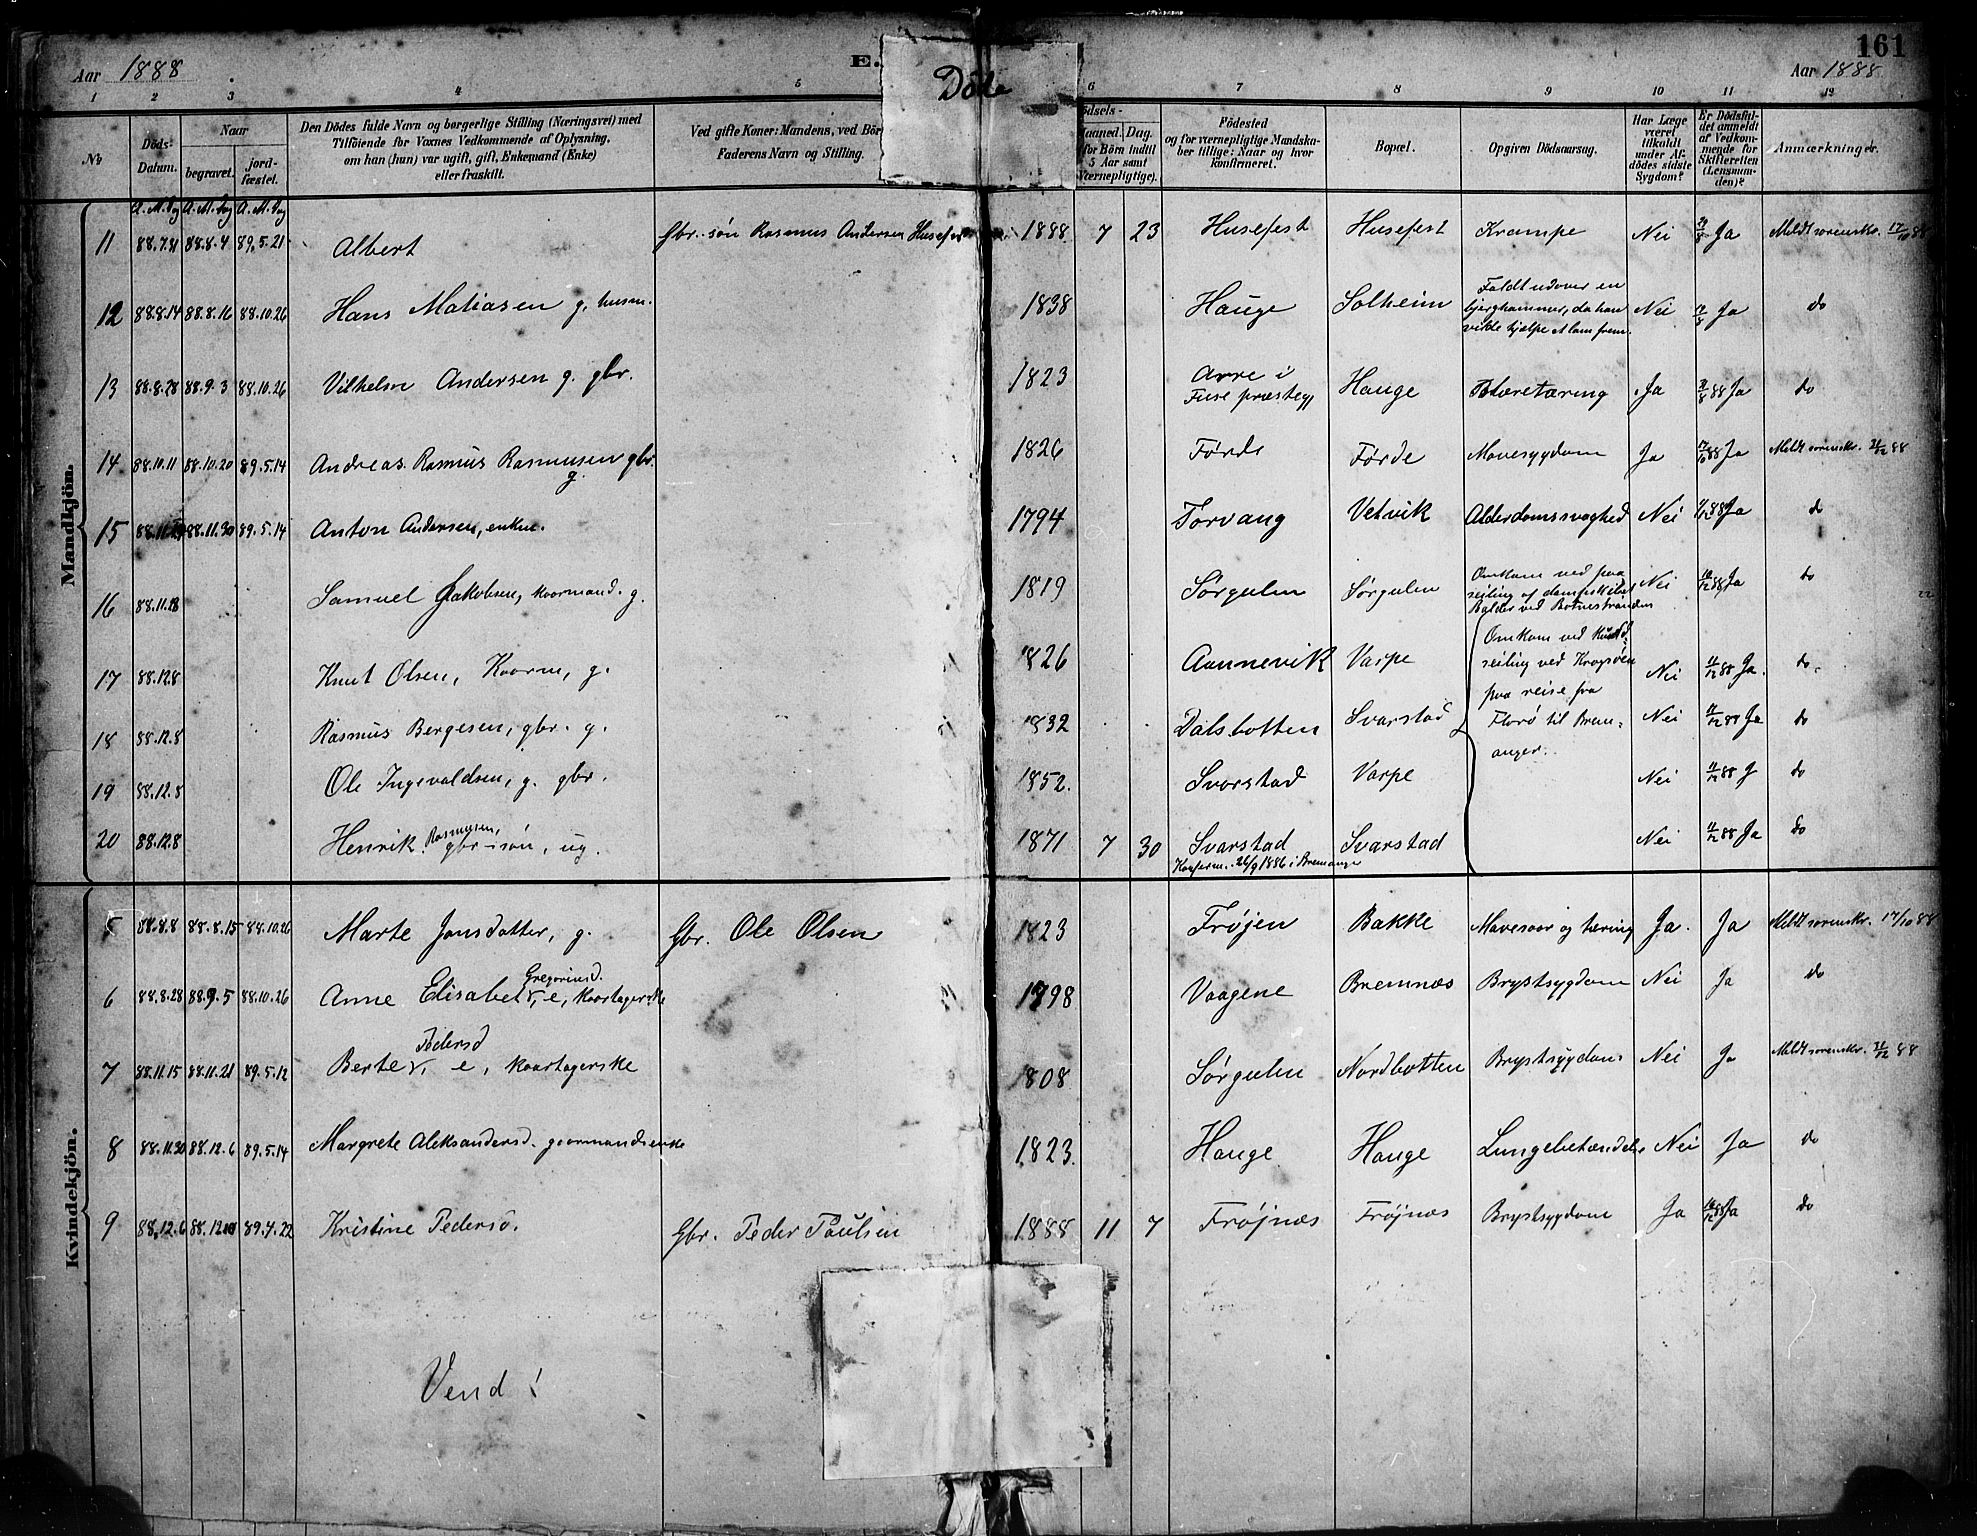 161
Aar 1888
E.
Döde
Aar 1888
1 2 3 4 5 6 7 8 9 10 11 12
No
Döds-Datum.
Naar
begravet.
jord-fæstet.
Den Dödes fulde Navn og borgerlige Stilling (Næringsvei) med
Tilföiende for Voxnes Vedkommende af Oplysning,
om han (hun) var ugift, gift, Enkemand (Enke)
eller fraskilt.
Ved gifte Koner: Mandens, ved Bör
Faderens Navn og Stilling.
ödsels-
Maaned. Dag.
(for Börn indtil
5 Aar samt
Værnepligtige).
Födested
og for værnepligtige Mandska-
ber tillige: Naar og hvor
konfirmeret.
Bopæl.
Opgiven Dödsaarsag.
Har Læge
været
tilkaldt
under Af-
dödes sidste
Sygdom?
Er Dödsfal-
det anmeldt
af Vedkom-
mende for
Skifteretten
(Lensman-
den)?
Anmærkninger.
A. M. Dag A. M. Dag A. M. Dag
Mandkjön.
11 88.7.31 88.8.4 89.5.21 Albert Gbr.-søn Rasmus Andersen Husefest 1888 7 23 Husefest Husefest Krampe Nei Ja Meldt sorenskr. 17/10 88
12 88.8.14 88.8.16 88.10.26 Hans Matiasen g. husm. 1838 Hauge Solheim Faldt udover en
bjerghammer, da han
vilde hjælpe et lam frem. Nei Ja do
13 88.8.28 88.9.3 88.10.26 Vilhelm Andersen g. gbr. 1823 Arre i
Fuse præstegj Hauge Blæretæring Ja 88 Ja do
14 88.10.11 88.10.20 89.5.14 Andreas Rasmus Rasmusen gbr.
g. 1826 Førde Førde Mavesygdom Ja 17/10 88 Ja Meldt sorenskr. 31/12 88
15 88.11. 88.11.30 89.5.14 Anton Andersen, enkm. 1794 Torvang Vetvik Alderdomssvaghed Nei 88 Ja do
16 88.11.18 Samuel Jakobsen, kaarmand. g. 1819 Sørgulen Sørgulen Omkom ved paa
seiling af dampskibet
Balder ved Botnestranden Nei 88 Ja do
17 88.12.8 Knut Olsen, Kaarm, g. 1826 Aannevik Varpe Omkom ved Kuld-
seiling ved Kragsøen
paa reise fra
Florø til Brem-
anger. Nei 11/12 88 Ja. do.
18 88.12.8 Rasmus Bergesen, gbr. g. 1832 Dalsbotten Svarstad Nei 11/12 88 Ja do
19 88.12.8 Ole Ingevaldsen, g. gbr. 1852. Svarstad Varpe Nei 11/12 88 J do
20 88.12.8 Henrik Rasmusen, gbr-søn, ug. 1871 7 30 Svarstad
Konfirm. 26/9 1886 i Bremanger Svarstad Nei 11/12 88 Ja do
Kvindekjön.
5 88.8.8 88.8.15 88.10.26 Marte Jonsdatter, g. Gbr. Ole Olsen 1823 Frøjen Bakke Mavesaar og tæring Ja. Ja Meldt sorenskr. 17/10 88
6 88.8.28 88.9.5 88.10.26 Anne Elisabet Gregoriusd. e, kaartagerske 1798 Vaagene Bremnæs Brystsygdom Nei Ja do
7 88.11.15 88.11.21 89.5.12 Berte Pedersd e, kaartagerske 1808 Sørgulen Nordbotten Brystsygdom Nei Ja Meldt sorenskr. 31/12 88
8 88.11.30 88.12.6 89.5.14 Margrete Aleksandersd. gaarmandsenke 1823. Hauge Hauge Lungebetændelse Nei Ja do
9 88.12.6 88.12. 89.4.22 Kristine Pedersd. Gbr. Peder Paulsen 1888 11 7 Frøjnæs Frøjnæs Brystsygdom Ja 88 Ja do
Vend!